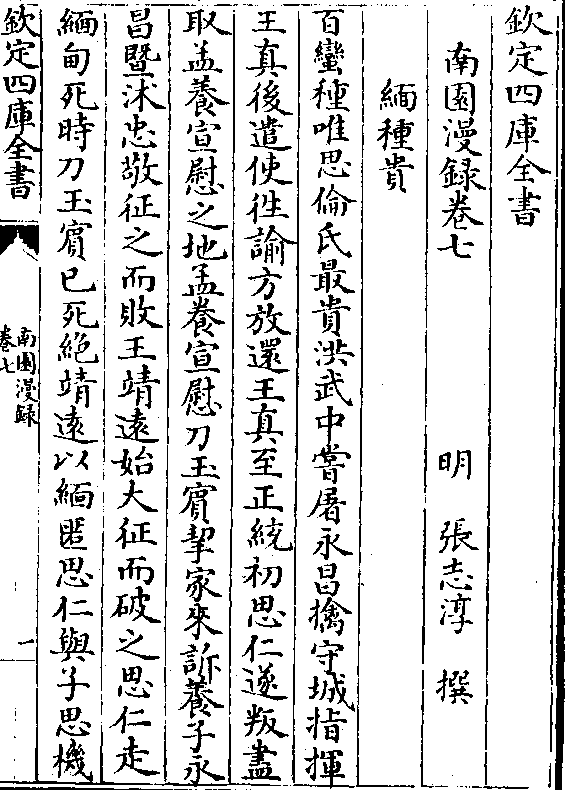 欽定四庫全書
南園漫録卷七
明　張志淳　撰
緬種貴
百蠻種唯思倫氏最貴洪武中嘗屠永昌擒守城指揮
王真後遣使徃諭方放還王真至正統初思仁遂叛盡
取孟養宣慰之地孟養宣慰刀玉賔挈家來訴養子永
昌暨沐忠敬征之而敗王靖遠始大征而破之思仁走
緬甸死時刀玉賔已死絶靖遠以緬匿思仁與子思機
欽定四庫全書
南園漫録
卷七
一